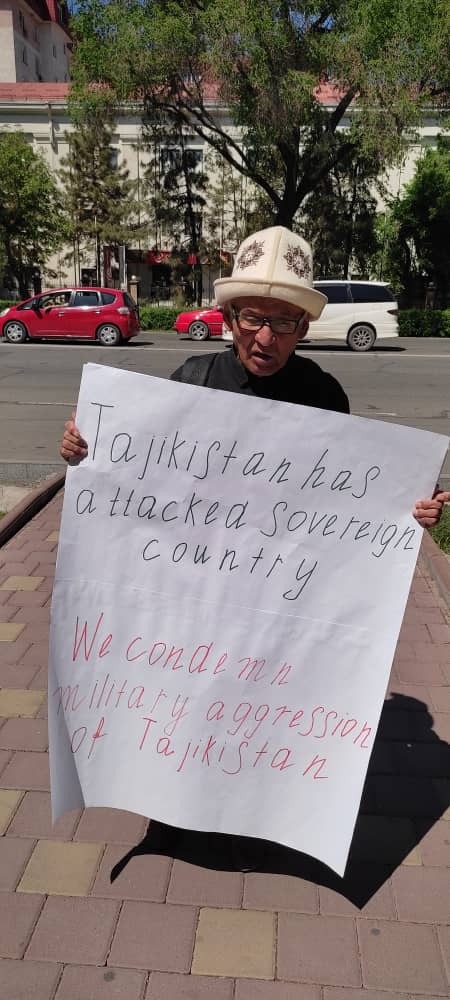 Tajikistan has
attacked sovereign
country
We condemn
military aggression
of Tajikistan